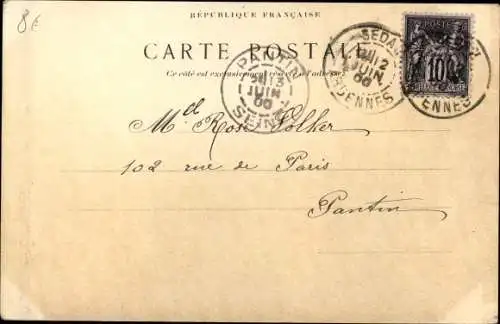 8€
RÉPUBLIQUE FRANÇAISE
CARTE POSTALE
Ce côté est exclusivement réservé à l'adresse
PANTIN
13
JUIN
00
SEINE
SEDAN
12
JUIN
00
ARDENNES
POSTE
10
ENNES
Md Rose Volker
102 rue de Paris
Pantin